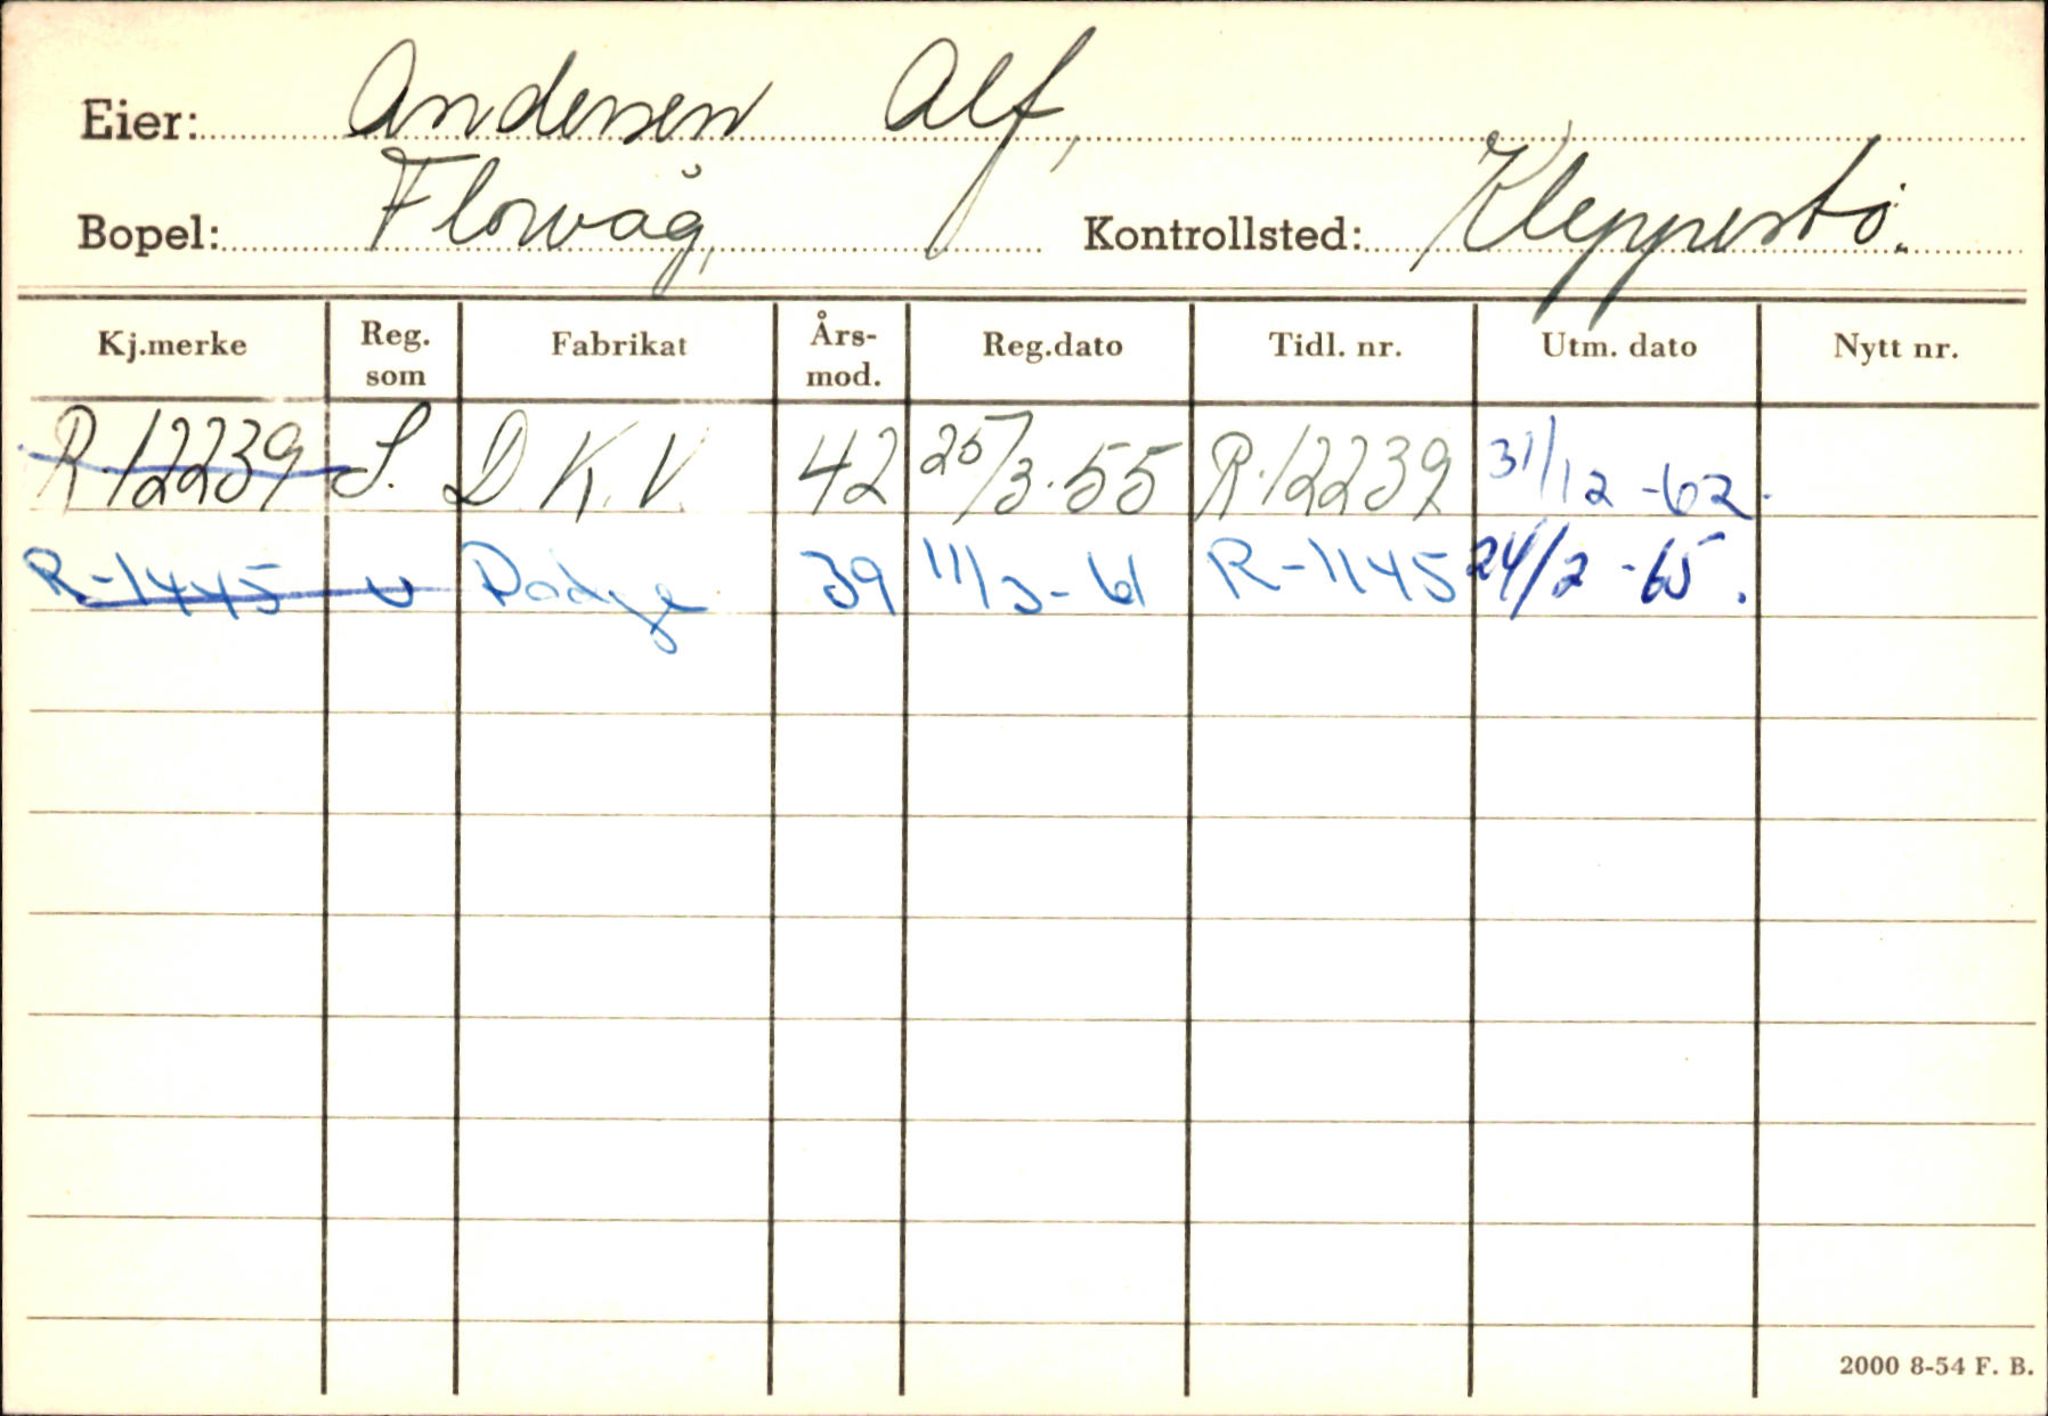 Eier: Andersen Alf,
Bopel: Florvåg, Kontrollsted: Kleppestø.
Kj.merke Reg. som Fabrikat Års-mod. Reg.dato Tidl. nr. Utm. dato Nytt nr.
R-12239 S. D.K.V. 42 25/3-55 R-12239 31/12-62.
R-1445 v Dodge 39 11/3-61 R-1145 24/2-65.
2000 8-54 F. B.